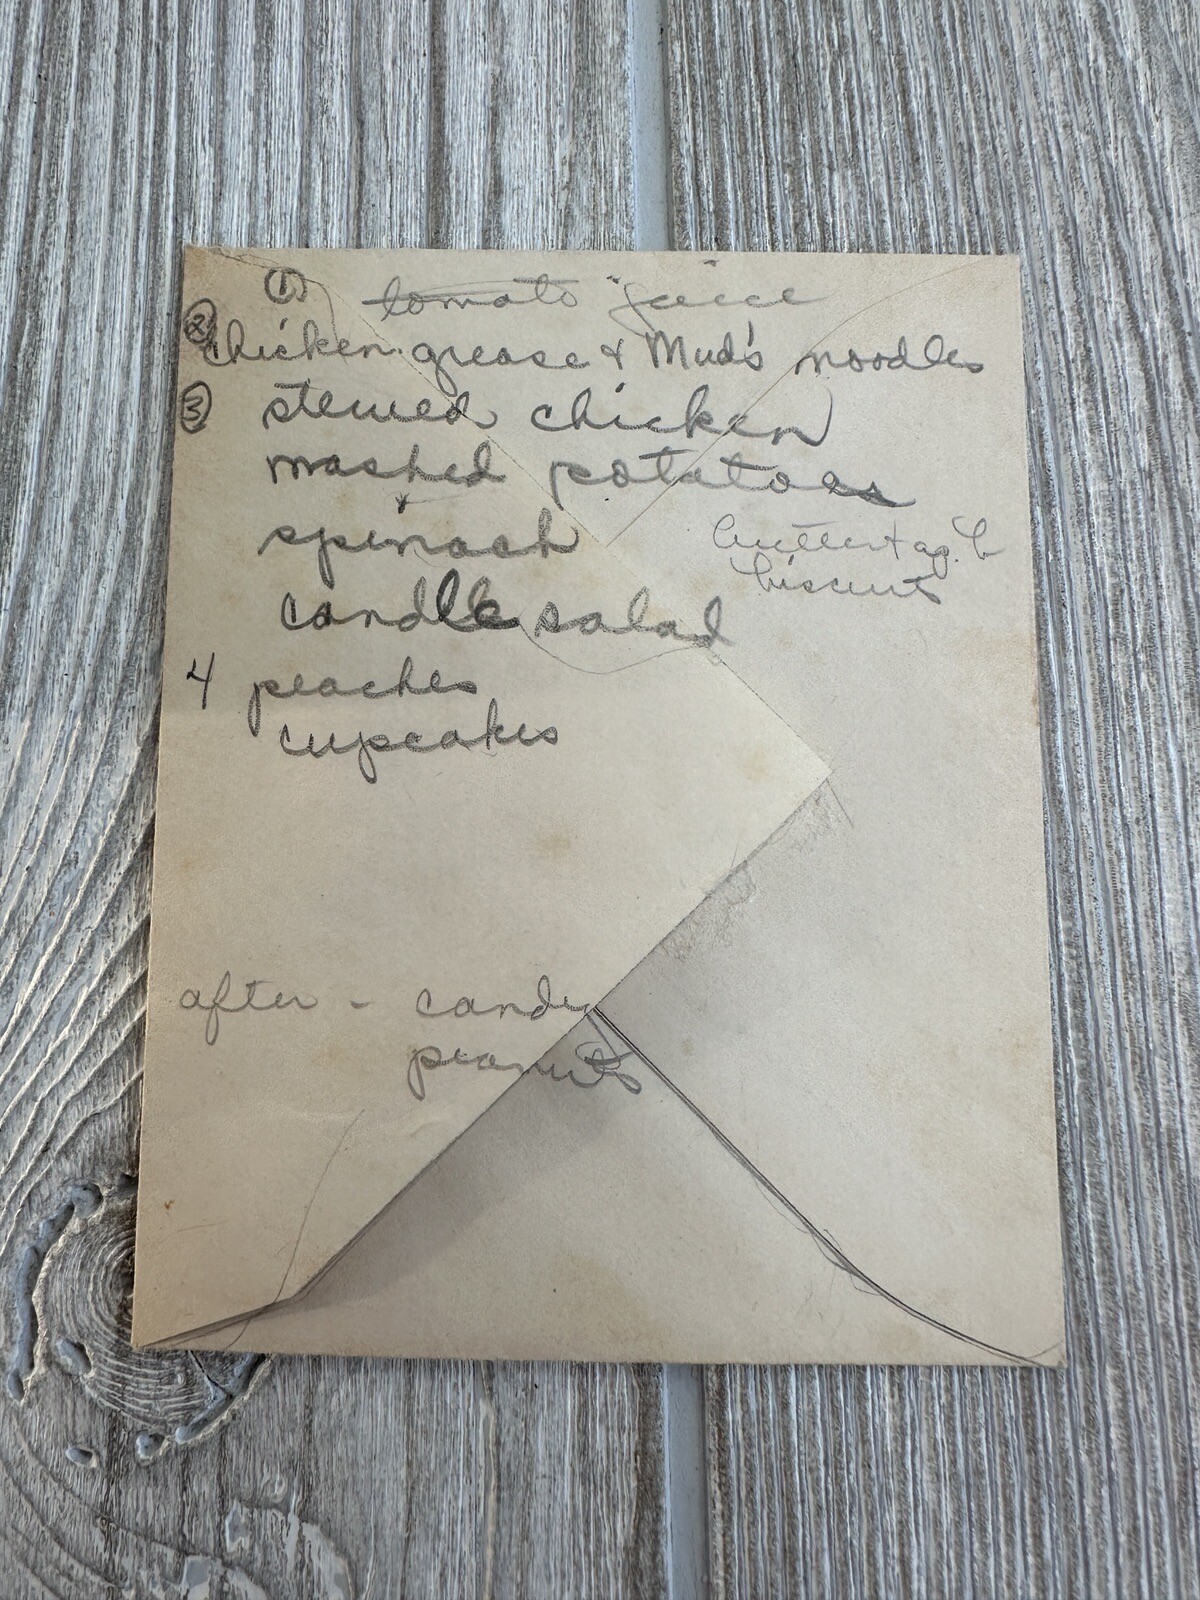 ① tomato juice
② chicken grease & Mud's noodles
③ stewed chicken
mashed potatoes
+
spinach
butter +
biscuits
candle salad
4 peaches
cupcakes
after - candy
peanuts